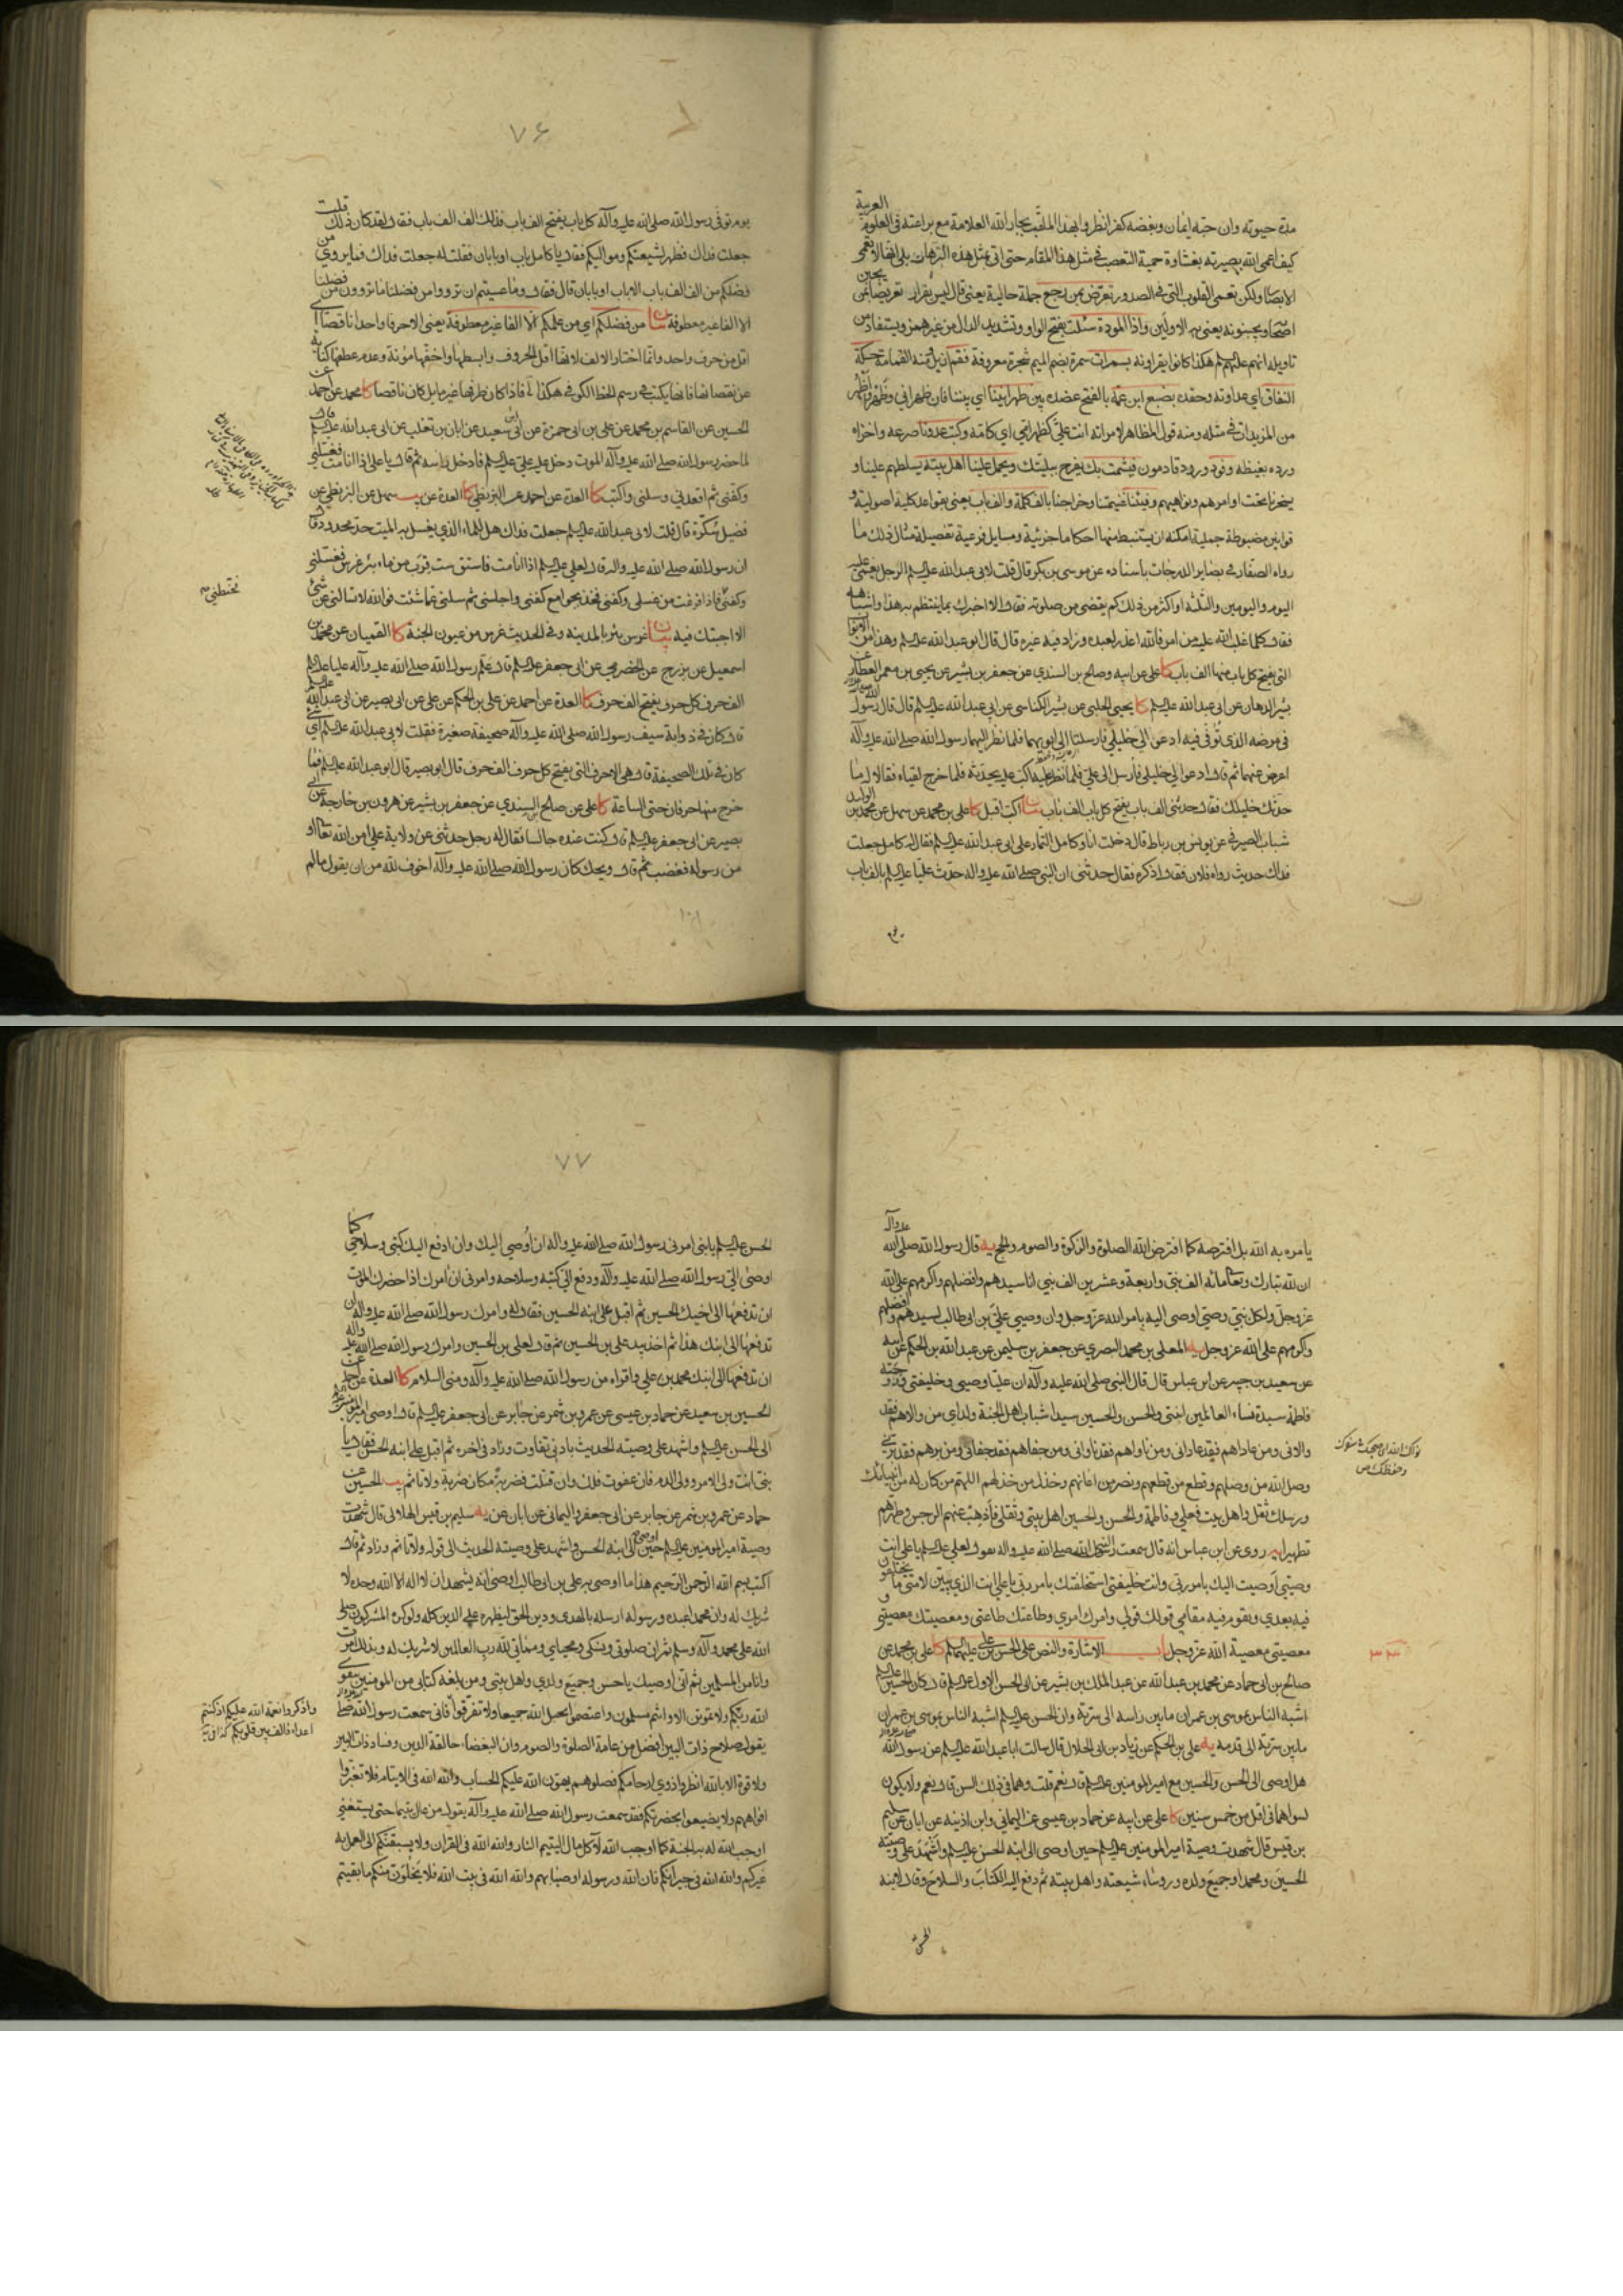 مدة حيوته وان حبه ايمان وبغضه كفر انظروا بهذا الملقب بجار الله العلامة مع براعته في العلوم العربية
كيف اعمى الله بصيرته بغشاوة حمية التعصب في مثل هذا المقام حتى اتى بمثل هذه الترهات بلى انها لا تعمى
الابصار ولكن تعمى القلوب التي في الصدور تعرض بمن رجع جملة حالية يعني قال ليس بفرار تعريضا بمن
اصحابه يجبنونه يعني بهم الاولين واذا المودة سئلت بفتح الواو وتشديد الدال من غير همز ويستفاد من
تاويله انهم عليهم السلم هكذا كانوا يقراونه بسمرات سمرة بضم الميم شجرة معروفة فقم
النفاق اي عداوته وحقده بضبع ابن عمه بالفتح عضده بين ظهرانينا اي بيننا فان ظهراني وظهر واظهر
من المزيدات في مثله ومنه قول المظاهر لامراته انت علي كظهر امي اي كامه وكبت عدونا صرعه واخزاه
ورده بغيظه وفود ورود قادمون فيشمت بك يفرح ببليتك ويحمل علينا اهل بيته يسلطهم علينا و
يسخرنا تحت اوامرهم ونواهيهم وفيئنا غنيمتنا وخراجنا بالف كلمة والف باب يعني بقواعد كلية اصولية و
قوانين مضبوطة جملية امكنه ان يستنبط منها احكاما جزئية ومسايل فرعية تفصيلة مثال ذلك ما
رواه الصفار في بصاير الدرجات باسناده عن موسى بن بكر قال قلت لابي عبد الله عليه السلم الرجل يغمى عليه
اليوم واليومين والثلثة او اكثر من ذلك كم يقضى من صلوته فقال الا اخبرك بما ينتظم به هذا واشباهه
فقال كلما غلب الله عليه من امر فالله اعذر لعبده وزاد فيه غيره قال قال ابو عبد الله عليه السلم وهذا من الابواب
التي يفتح كل باب منها الف باب كا علي عن ابيه وصالح بن السندي عن جعفر بن بشير عن يحيى بن معمر العطار عن
بشير الدهان عن ابي عبد الله عليه السلم كا يحيى الحلبي عن بشير الكناسي عن ابي عبد الله عليه السلم قال قال رسول الله
في مرضه الذي توفي فيه ادعوا لي خليلي فارسلتا الى ابويهما فلما نظر اليهما رسول الله صلى الله عليه وآله
اعرض عنهما ثم قال ادعوا لي خليلي فارسل الى علي فلما نظر اليه اكب عليه يحدثه فلما خرج لقياه فقالا له ما
حدثك خليلك فقال حدثني الف باب يفتح كل باب الف باب بيان اكب اقبل كا علي بن محمد عن سهل عن محمد بن الوليد
شباب الصيرفي عن يونس بن رباط قال دخلت انا وكامل التمار على ابي عبد الله عليه السلم فقال له كامل جعلت
فداك حديث رواه فلان فقال اذكره فقال حدثني ان النبي صلى الله عليه واله حدث عليا عليه السلم بالف باب
يوم
٧۶
يوم توفى رسول الله صلى الله عليه وآله كل باب يفتح الف باب فذلك الف الف باب فقال لقد كان ذلك قلت
جعلت فداك فظهر لشيعتكم ومواليكم فقال يا كامل باب او بابان فقلت له جعلت فداك فما يروى من
فضلكم من الف الف باب الا باب او بابان قال فقال وما عسيتم ان ترووا من فضلنا ما تروون من فضلنا
الا الفا غير معطوفة بيان من فضلكم اي من علمكم الا الفا غير معطوفة يعني الا حرفا واحدا ناقصا اي
اقل من حرف واحد وانما اختار الالف لانها اقل الحروف وابسطها واخفها مؤنة وعدم عطفها كناية
عن نقصانها فانها يكتب في رسم الخط الكوفي هكذا فاذا كان طرفها غير مايل كان ناقصا كا محمد عن احمد عن
الحسين عن القاسم بن محمد عن علي بن ابي حمزة عن ابن ابي سعيد عن ابان بن تغلب عن ابي عبد الله عليه السلم قال
لما حضر رسول الله صلى الله عليه وآله الموت دخل عليه علي عليه السلم فادخل راسه ثم قال يا علي اذا انا مت فغسلني
وكفني ثم اقعدني وسلني واكتب كا العدة عن احمد عن البزنطي كا العدة عن يب سهل عن البزنطي عن
فضيل سكرة قال قلت لابي عبد الله عليه السلم جعلت فداك هل للماء الذي يغسل به الميت حد محدود قال
ان رسول الله صلى الله عليه واله قال لعلي عليه السلم اذا انا مت فاستق ست قرب من ماء بئر غرس فغسلني
وكفني فاذا فرغت من غسلي وكفني فخذ بجوامع كفني واجلسني ثم سلني عما شئت فوالله لا تسالني عن شيء
فحنطني
الا اجبتك فيه بيان غرس بئر بالمدينة وفي الحديث غرس من عيون الجنة كا القميان عن محمد بن
اسمعيل عن بزرج عن الحضرمي عن ابي جعفر عليه السلم قال علم رسول الله صلى الله عليه وآله عليا عليه السلم
الف حرف كل حرف يفتح الف حرف كا العدة عن احمد عن علي بن الحكم عن علي عن ابي بصير عن ابي عبد الله عليه السلم
قال كان في ذوابة سيف رسول الله صلى الله عليه وآله صحيفة صغيرة فقلت لابي عبد الله عليه السلم اي شيء
كان في تلك الصحيفة قال هي الاحرف التي يفتح كل حرف الف حرف قال ابو بصير قال ابو عبد الله عليه السلم فما
خرج منها حرفان حتى الساعة كا علي عن صالح السندي عن جعفر بن بشير عن هرون بن خارجة عن ابي
بصير عن ابي جعفر عليه السلم قال كنت عنده جالسا فقال له رجل حدثني عن ولاية علي امن الله تعالى او
من رسوله فغضب ثم قال ويحك كان رسول الله صلى الله عليه وآله اخوف لله من ان يقول ما لم
يامره به الله بل افترضه كما افترض الله الصلوة والزكوة والصوم والحج يه قال رسول الله صلى الله عليه وآله
ان لله تبارك وتعالى مائه الف نبي واربعة وعشرين الف نبي انا سيدهم وافضلهم واكرمهم على الله
عز وجل ولكل نبي وصي اوصى اليه بامر الله عز وجل وان وصيي علي بن ابي طالب لسيدهم وافضلهم
واكرمهم على الله عز وجل يه المعلى بن محمد البصري عن جعفر بن سليمن عن عبد الله بن الحكم عن ابيه
عن سعيد بن جبير عن ابن عباس قال قال النبي صلى الله عليه وآله ان عليا وصيي وخليفتي وزوجته
فاطمة سيدة نساء العالمين ابنتي والحسن والحسين سيدا شباب اهل الجنة ولداي من والاهم فقد
والاني ومن عاداهم فقد عاداني ومن ناواهم فقد ناواني ومن جفاهم فقد جفاني ومن برهم فقد برني
وصل الله من وصلهم وقطع من قطعهم ونصر من اعانهم وخذل من خذلهم اللهم من كان له من انبيائك
ورسلك ثقل واهل بيت فعلي وفاطمة والحسن والحسين اهل بيتي وثقلي فاذهب عنهم الرجس وطهرهم
تطهيرا يه روى عن ابن عباس انه قال سمعت رسول الله صلى الله عليه واله يقول لعلي عليه السلم يا علي انت
وصيي اوصيت اليك بامر ربي وانت خليفتي استخلفتك بامر ربي يا علي انت الذي يبين لامتي ما يختلفون
فيه بعدي وتقوم فيه مقامي قولك قولي وامرك امري وطاعتك طاعتي ومعصيتك معصيتي و
معصيتي معصية الله عز وجل باب الاشارة والنص على الحسن بن علي عليهما السلم كا علي بن محمد عن
صالح بن ابي حماد عن محمد بن عبد الله عن عبد الملك بن بشير عن ابي الحسن الاول عليه السلم قال كان الحسين عليه السلم
اشبه الناس بموسى بن عمران ما بين راسه الى سرته وان الحسن عليه السلم اشبه الناس بموسى بن عمران
ما بين سرته الى قدمه يه علي بن الحكم عن زياد بن ابي الحلال قال سالت ابا عبد الله عليه السلم عن رسول الله
هل اوصى الى الحسن والحسين مع امير المومنين عليه السلم قال نعم قلت وهما في ذلك السن قال نعم ولا يكون
لسواهما في اقل من خمس سنين كا علي عن ابيه عن حماد بن عيسى عن اليماني وابن اذينة عن ابان عن سليم
بن قيس قال شهدت وصية امير المومنين عليه السلم حين اوصى الى ابنه الحسن عليه السلم واشهد على وصيته
الحسين ومحمدا وجميع ولده وروساء شيعته واهل بيته ثم دفع اليه الكتاب والسلاح وقال لابنه
الحسن
٧٧
الحسن عليه السلم يا بني امرني رسول الله صلى الله عليه واله ان اوصي اليك وان ادفع اليك كتبي وسلاحي كما
اوصى الي رسول الله صلى الله عليه وآله ودفع الي كتبه وسلاحه وامرني ان امرك اذا حضرك الموت
ان تدفعها الى اخيك الحسين ثم اقبل على ابنه الحسين فقال له وامرك رسول الله صلى الله عليه واله ان
تدفعها الى ابنك هذا ثم اخذ بيد علي بن الحسين ثم قال لعلي بن الحسين وامرك رسول الله صلى الله عليه واله
ان تدفعها الى ابنك محمد بن علي واقراه من رسول الله صلى الله عليه وآله ومني السلام كا العدة عن احمد عن
الحسين بن سعيد عن حماد بن عيسى عن عمرو بن شمر عن جابر عن ابي جعفر عليه السلم قال اوصى امير المومنين
الى الحسن عليه السلم واشهد على وصيته الحديث بادنى تفاوت وزاد في اخره ثم اقبل على ابنه الحسن فقال يا
بني انت ولي الامر وولي الدم فان عفوت فلك وان قتلت فضربة مكان ضربة ولا تاثم يب الحسين عن
حماد عن عمرو بن شمر عن جابر عن ابي جعفر واليماني عن ابان عن يه سليم بن قيس الهلالي قال شهدت
وصية امير المومنين عليه السلم حين اوصى الى ابنه الحسن واشهد على وصيته الحديث الى قوله ولا تاثم وزاد ثم قال
اكتب بسم الله الرحمن الرحيم هذا ما اوصى به علي بن ابي طالب اوصى انه يشهد ان لا اله الا الله وحده لا
شريك له وان محمدا عبده ورسوله ارسله بالهدى ودين الحق ليظهره على الدين كله ولو كره المشركون صلى
الله على محمد وآله وسلم ثم ان صلوتي ونسكي ومحياي ومماتي لله رب العالمين لا شريك له وبذلك امرت
وانا من المسلمين ثم اني اوصيك يا حسن وجميع ولدي واهل بيتي ومن بلغه كتابي من المومنين بتقوى
الله ربكم ولا تموتن الا وانتم مسلمون واعتصموا بحبل الله جميعا ولا تفرقوا فاني سمعت رسول الله صلى
واذكروا نعمة الله عليكم اذ كنتم
اعداء فالف بين قلوبكم
يقول صلاح ذات البين افضل من عامة الصلوة والصوم وان البغضاء حالقة الدين وفساد ذات البين
ولا قوة الا بالله انظروا ذوي ارحامكم فصلوهم يهون الله عليكم الحساب والله الله في الايتام فلا تغيروا
افواههم ولا يضيعوا بحضرتكم فقد سمعت رسول الله صلى الله عليه وآله يقول من عال يتيما حتى يستغني
اوجب الله له به الجنة كما اوجب الله لآكل مال اليتيم النار والله الله في القران ولا يسبقنكم الى العمل به
غيركم والله الله في جيرانكم فان الله ورسوله اوصيا بهم والله الله في بيت الله فلا يخلون منكم ما بقيتم